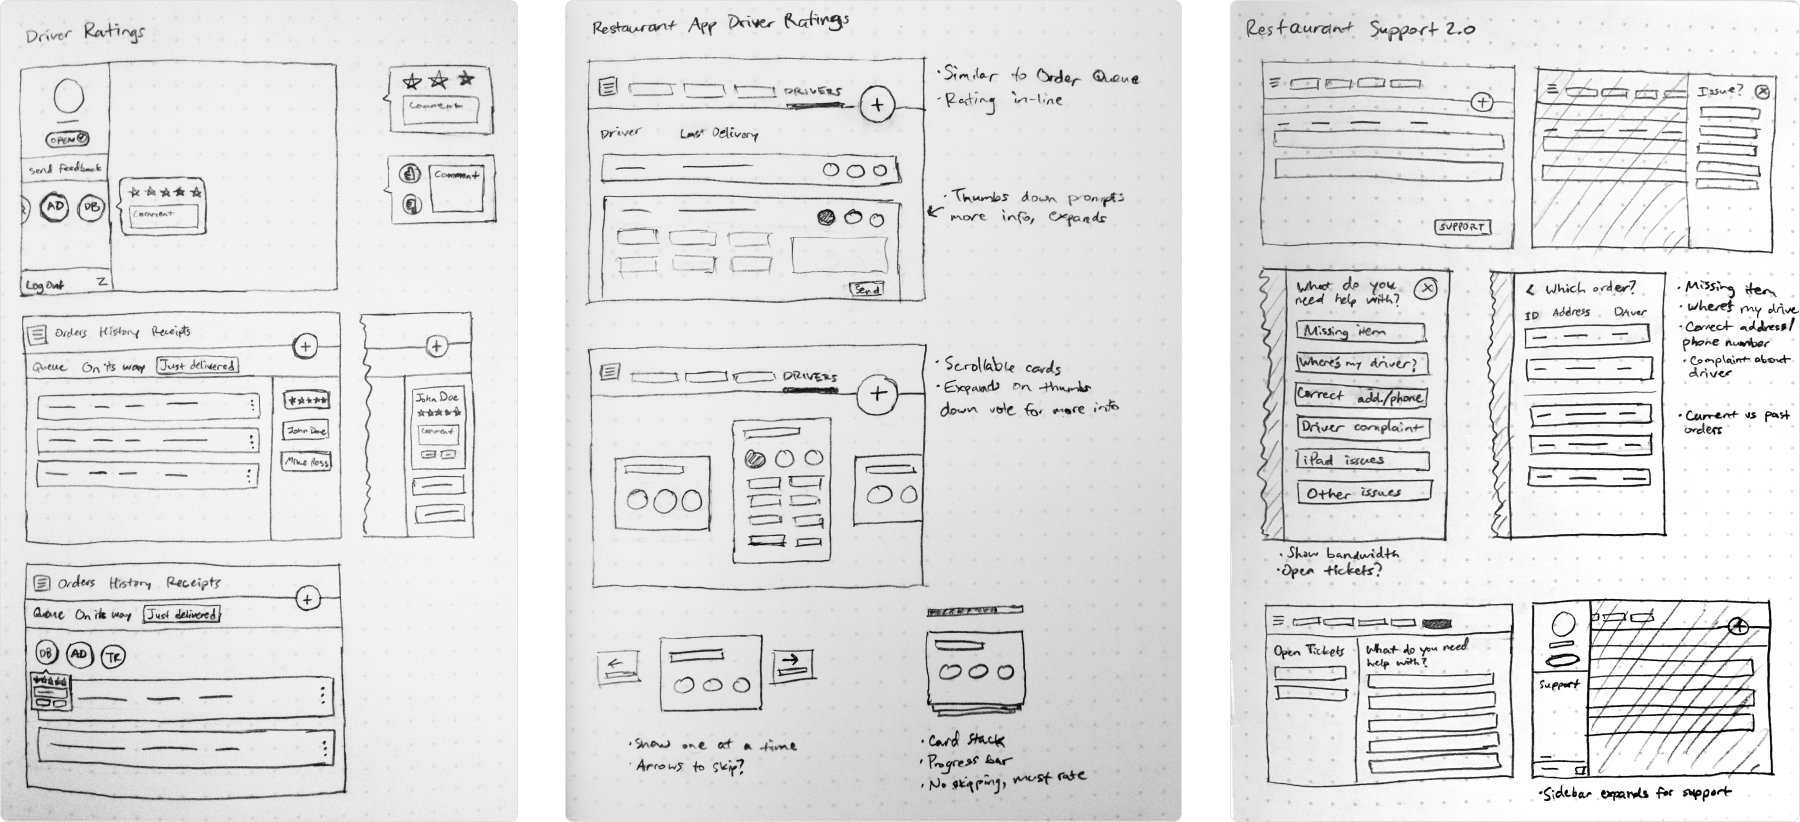 Driver Ratings
OPEN
Send feedback
AD
DB
Comment
Log out
Comment
Comment
Orders History Receipts
Queue On its way Just delivered
John Doe
Mike Ross
John Doe
Comment
Orders History Receipts
Queue On its way Just delivered
DB AD TR
Restaurant App Driver Ratings
DRIVERS
Driver Last Delivery
Send
· Similar to Order Queue
· Rating in-line
· Thumbs down prompts
more info, expands
DRIVERS
· Scrollable cards
· Expands on thumbs
down vote for more info
· Show one at a time
· Arrows to skip?
· Card stack
· Progress bar
· No skipping, must rate
Restaurant Support 2.0
SUPPORT
Issue?
What do you
need help with?
Missing item
Where's my driver?
Correct add/phone
Driver complaint
iPad issues
Other issues
· Show bandwidth
· Open tickets?
< Which order?
ID Address Driver
· Missing item
· Where's my drive
· Correct address/
phone number
· Complaint about
driver
· Current vs past
orders
Open Tickets
What do you need
help with?
Support
· Sidebar expands for support